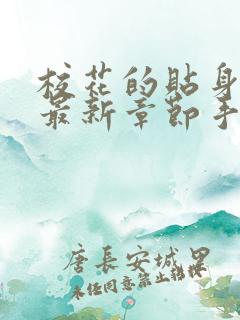 校花的贴身
最新章节手
唐長安城里
未经同意禁止转载